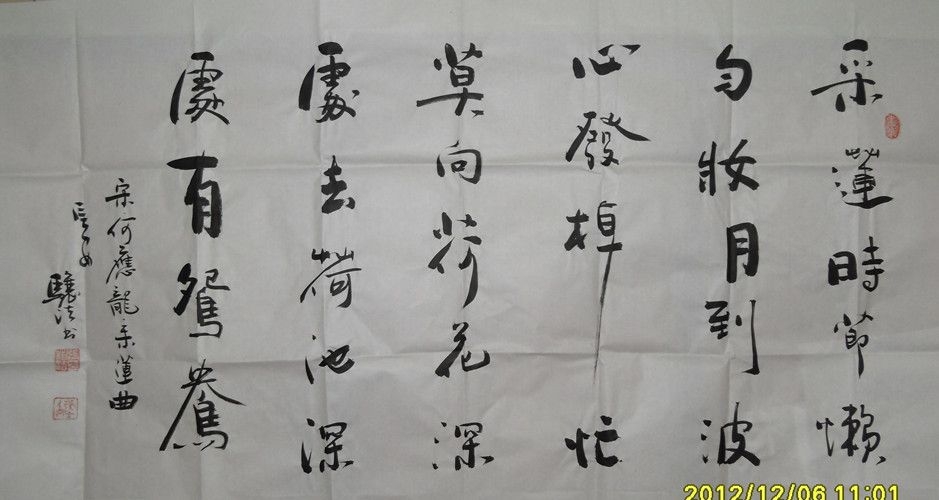 采蓮時節懶
勻妝月到波
心發棹忙
莫向荷花深
處去荷池深
處有鴛鴦
宋何應龍采蓮曲
2012/12/06 11:01